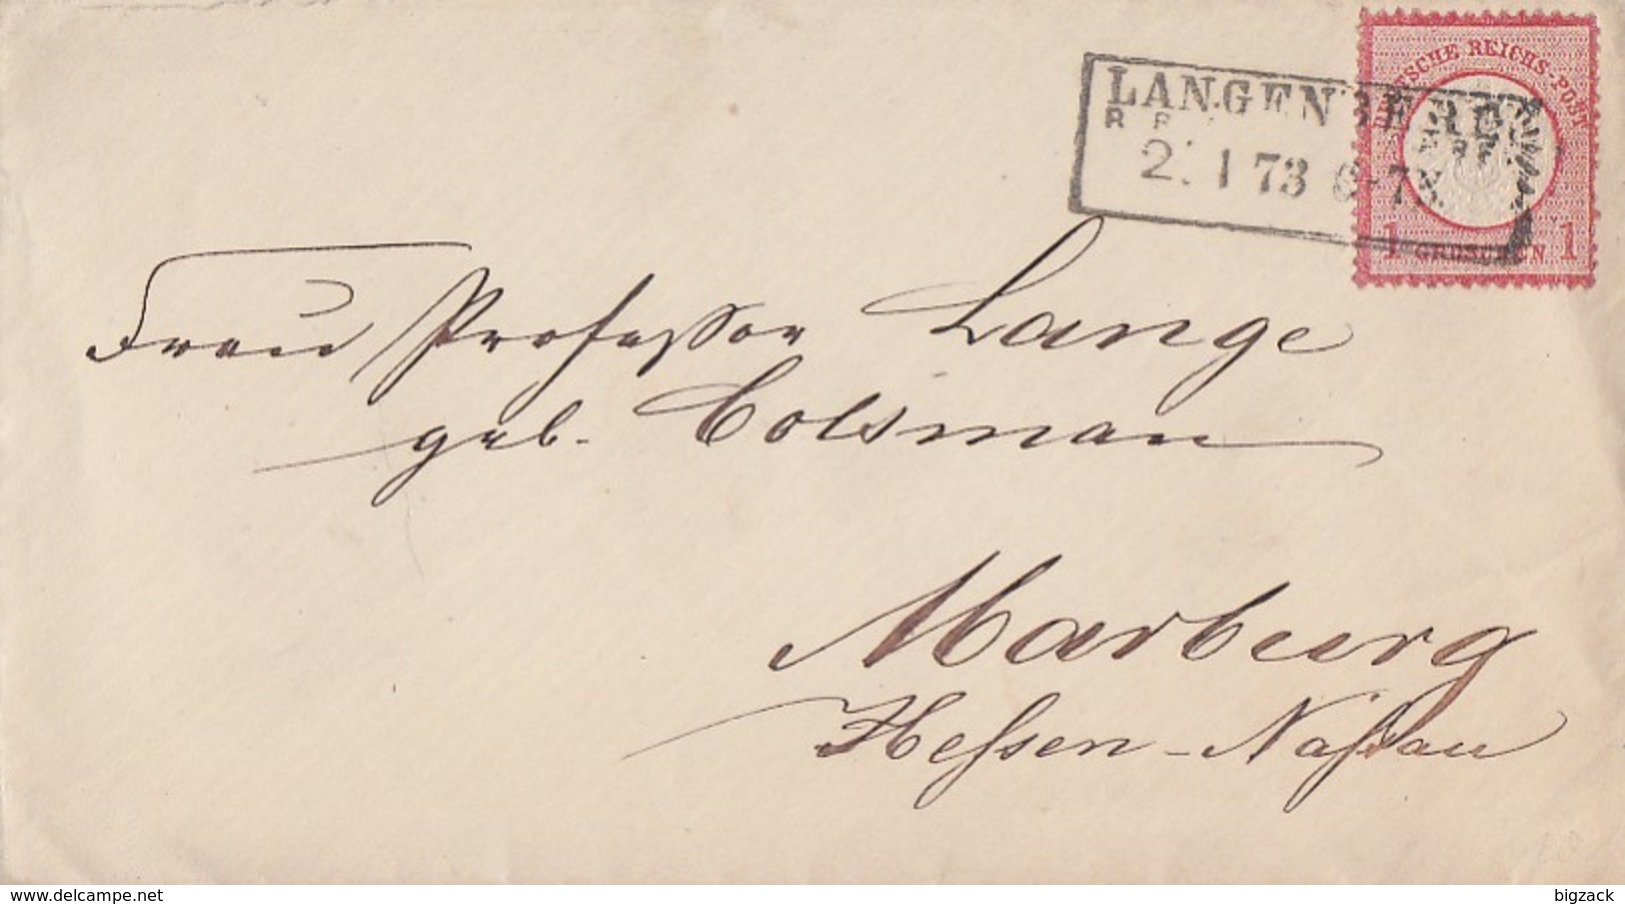 DEUTSCHE REICHS-POST
LANGENBERG
2. 1 73 6-7
1 GROSCHEN 1
Frau Professor Lange
geb. Colsman
Marburg
Hessen-Nassau
delcampe.net
bigzack